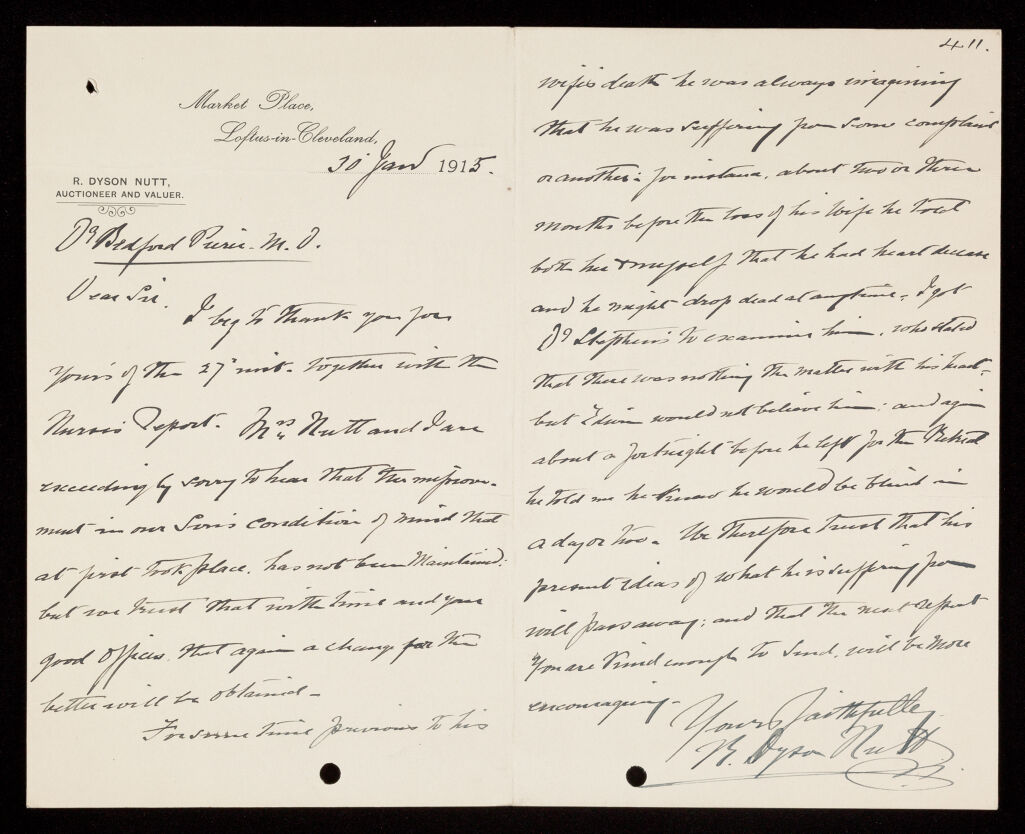 Market Place,
Loftus-in-Cleveland,
30 Jany 1915.
R. DYSON NUTT,
AUCTIONEER AND VALUER.
Dr Bedford Pierce. M. D.
Dear Sir.
I beg to thank you for
yours of the 27th inst. together with the
Nurse's Report. Mrs Nutt and I are
exceedingly sorry to hear that the improve-
ment in our Son's condition of mind that
at first took place, has not been Maintained:
but we trust that with time and your
good Offices, that again a change for the
better will be obtained -
For some time previous to his
411.
wife's death he was always imagining
that he was suffering from some complaint
or another: for instance, about two or three
months before the loss of his Wife he told
both her & myself that he had heart disease
and he might drop dead at anytime, I got
Dr Stephens to examine him, who stated
that there was nothing the matter with his heart,
but Edwin would not believe him: and again
about a fortnight before he left for the Retreat
he told me he knew he would be blind in
a day or two. We therefore trust that his
present ideas of what he is suffering from
will pass away; and that the next report
you are kind enough to send, will be more
encouraging.
Yours faithfully
R. Dyson Nutt